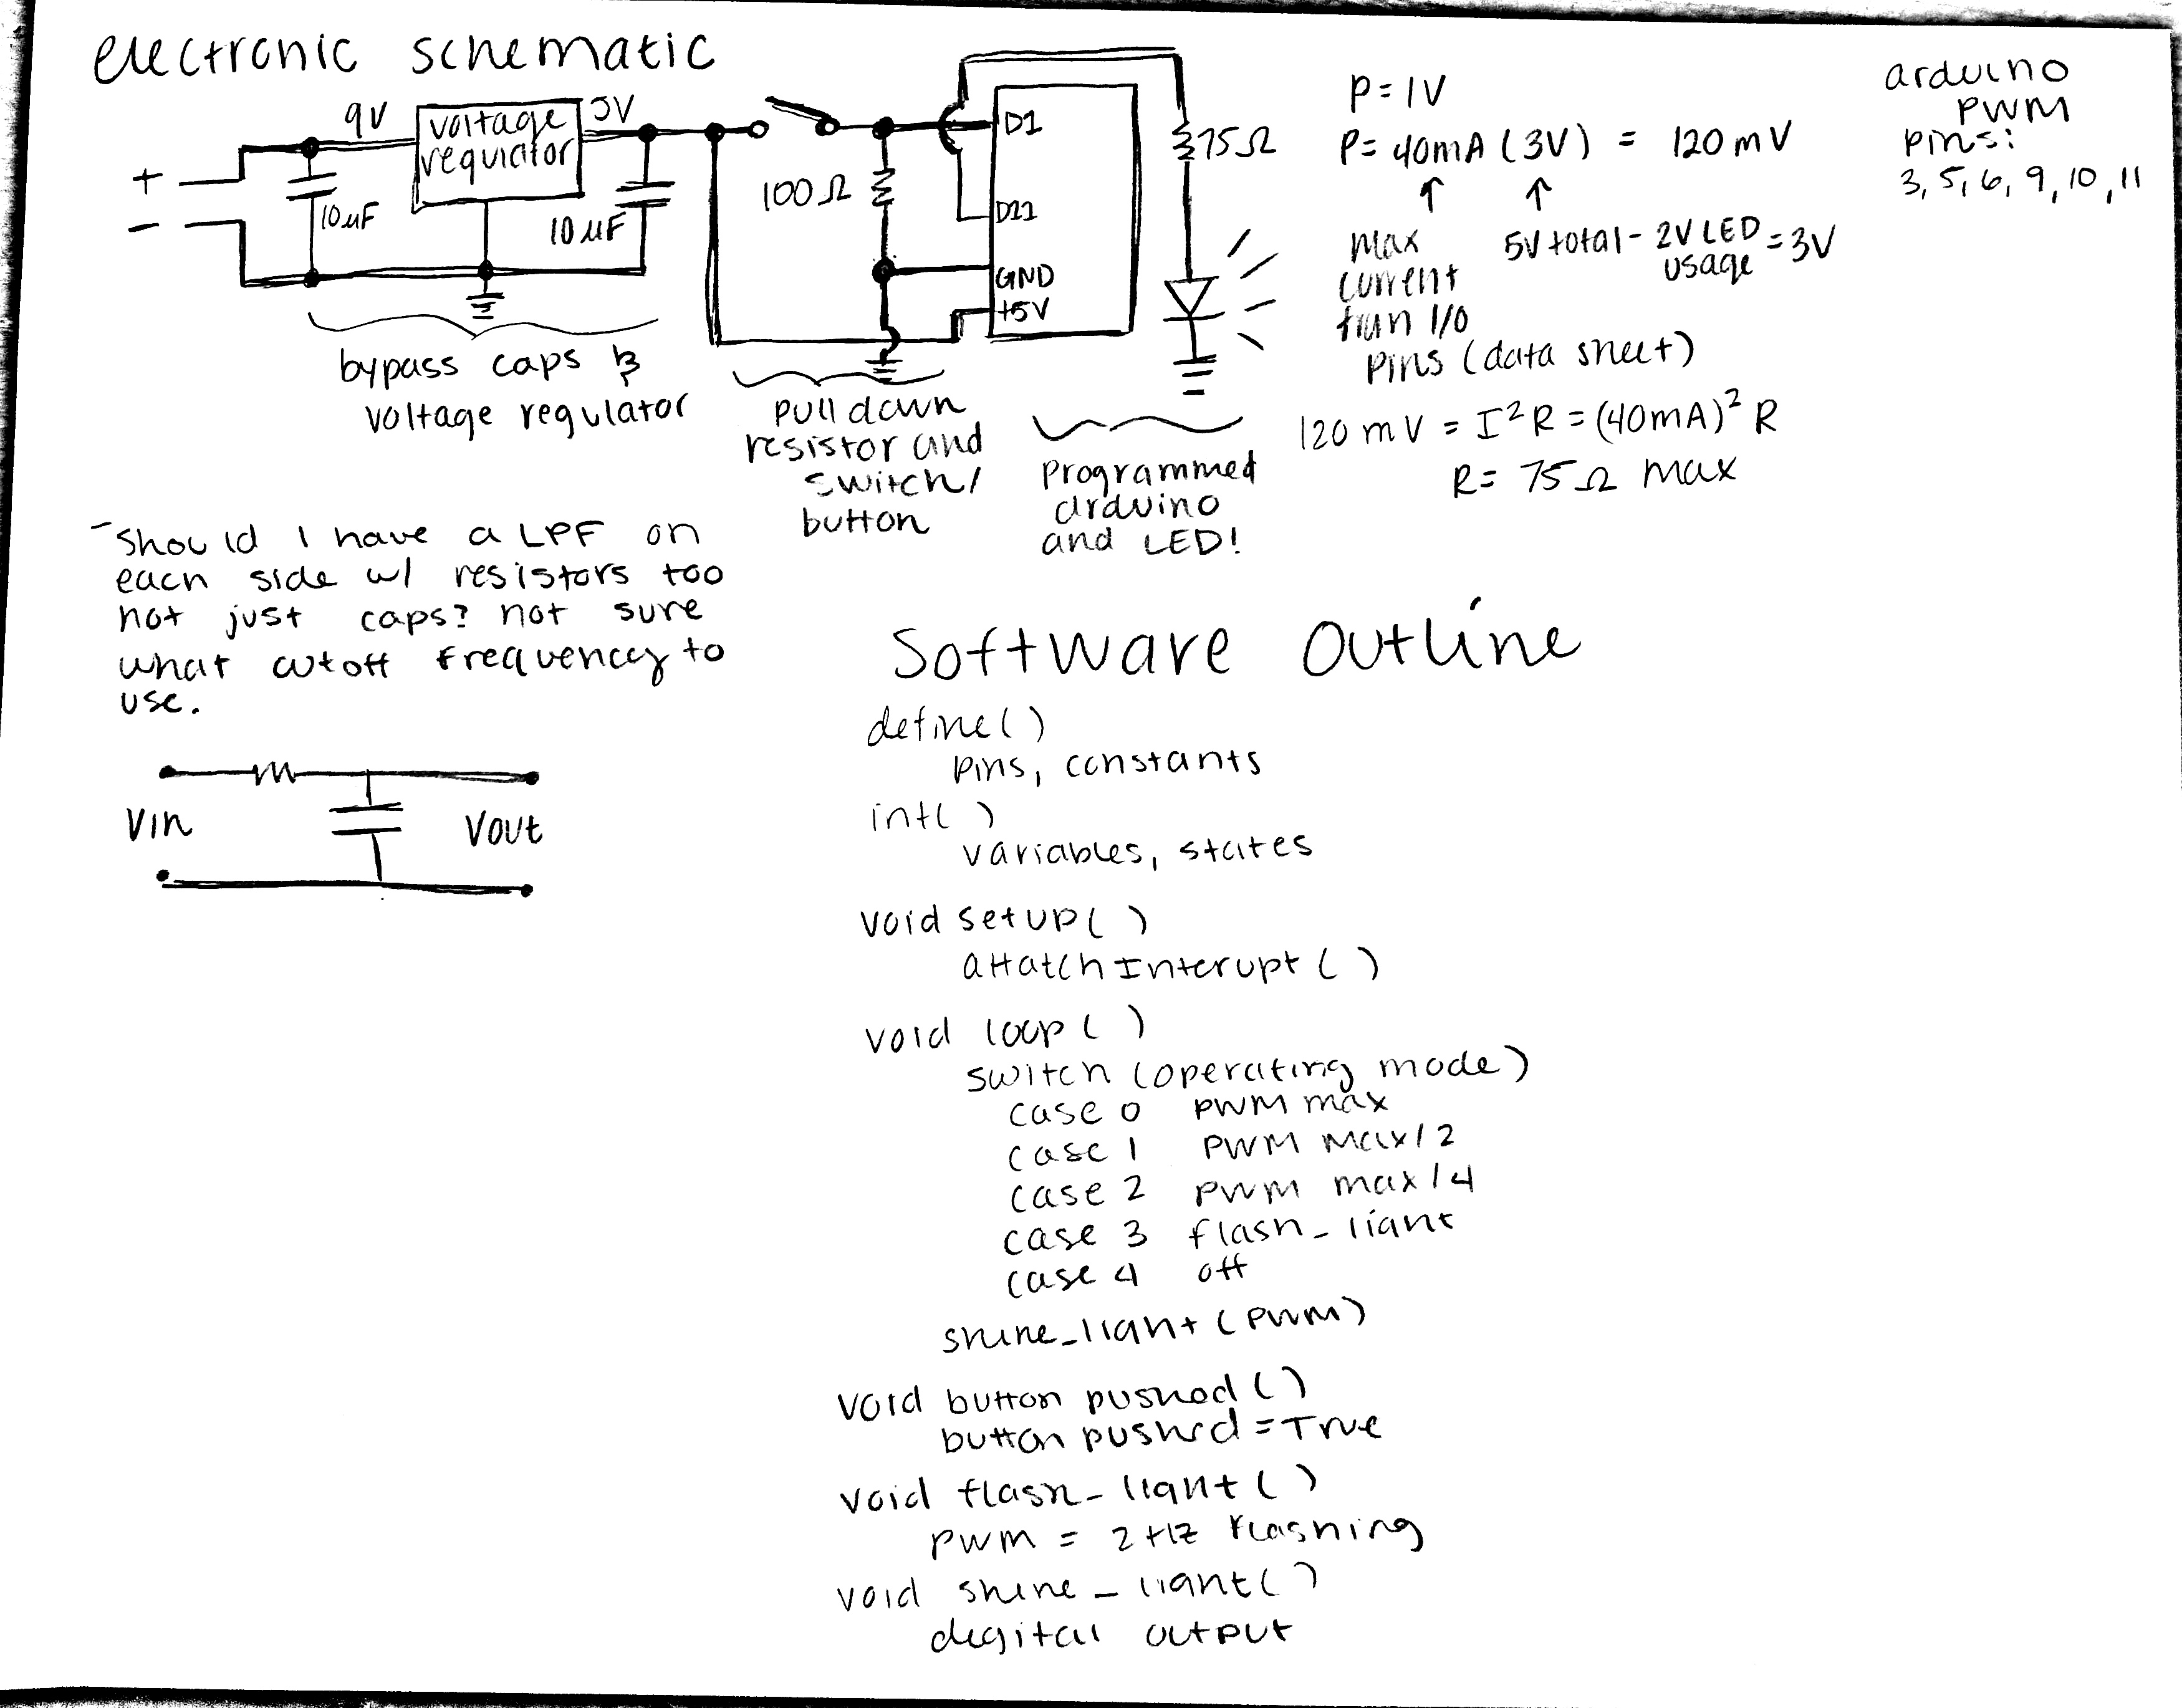 electronic schematic
9V
voltage
regulator
5V
+
-
10 µF
10 µF
100 Ω
D1
D11
GND
+5V
75Ω
bypass caps &
voltage regulator
pull down
resistor and
switch/
button
programmed
arduino
and LED!
P = IV
P = 40mA (3V) = 120 mV
↑ ↑
max
current
from I/O
pins (data sheet)
5V total - 2V LED usage = 3V
120 mV = I²R = (40mA)² R
R = 75 Ω max
arduino
PWM
pins:
3, 5, 6, 9, 10, 11
- Should I have a LPF on
each side w/ resistors too
not just caps? not sure
what cutoff frequency to
use.
Vin
Vout
Software Outline
define()
pins, constants
int( )
variables, states
void setup( )
attatchInterupt ( )
void loop ( )
switch (operating mode)
case 0 PWM max
case 1 PWM max/2
case 2 PWM max/4
case 3 flash_light
case 4 off
shine_light (PWM)
void button pushed ( )
button pushed = True
void flash_light ( )
pwm = 2Hz flashing
void shine_light( )
digital output